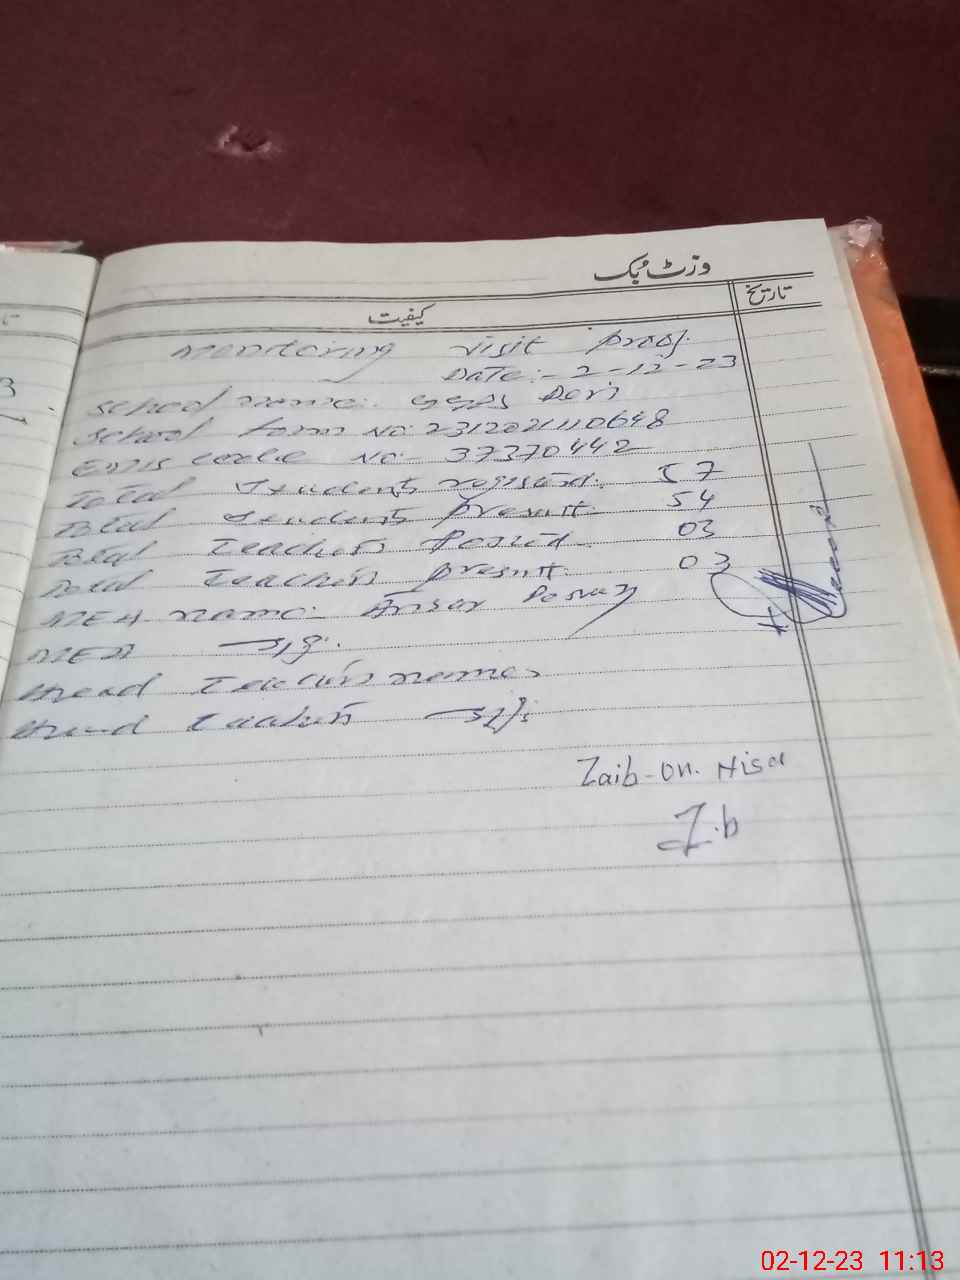 وزٹ بک
تاریخ
کیفیت
Monitoring visit proof.
Date:- 2-12-23
School name: GGPS Deri
School form No: 2312021110648
Emis code No:- 37370442
Total Students registerd: 57
Total Students present:- 54
Total Teachers Posted:- 03
Total Teachers present:- 03
MEA name:- Ansar
MEA sig:
Head Teachers name:
Head Teachers sig:
Zaib-un-Nisa
Z.b
02-12-23 11:13